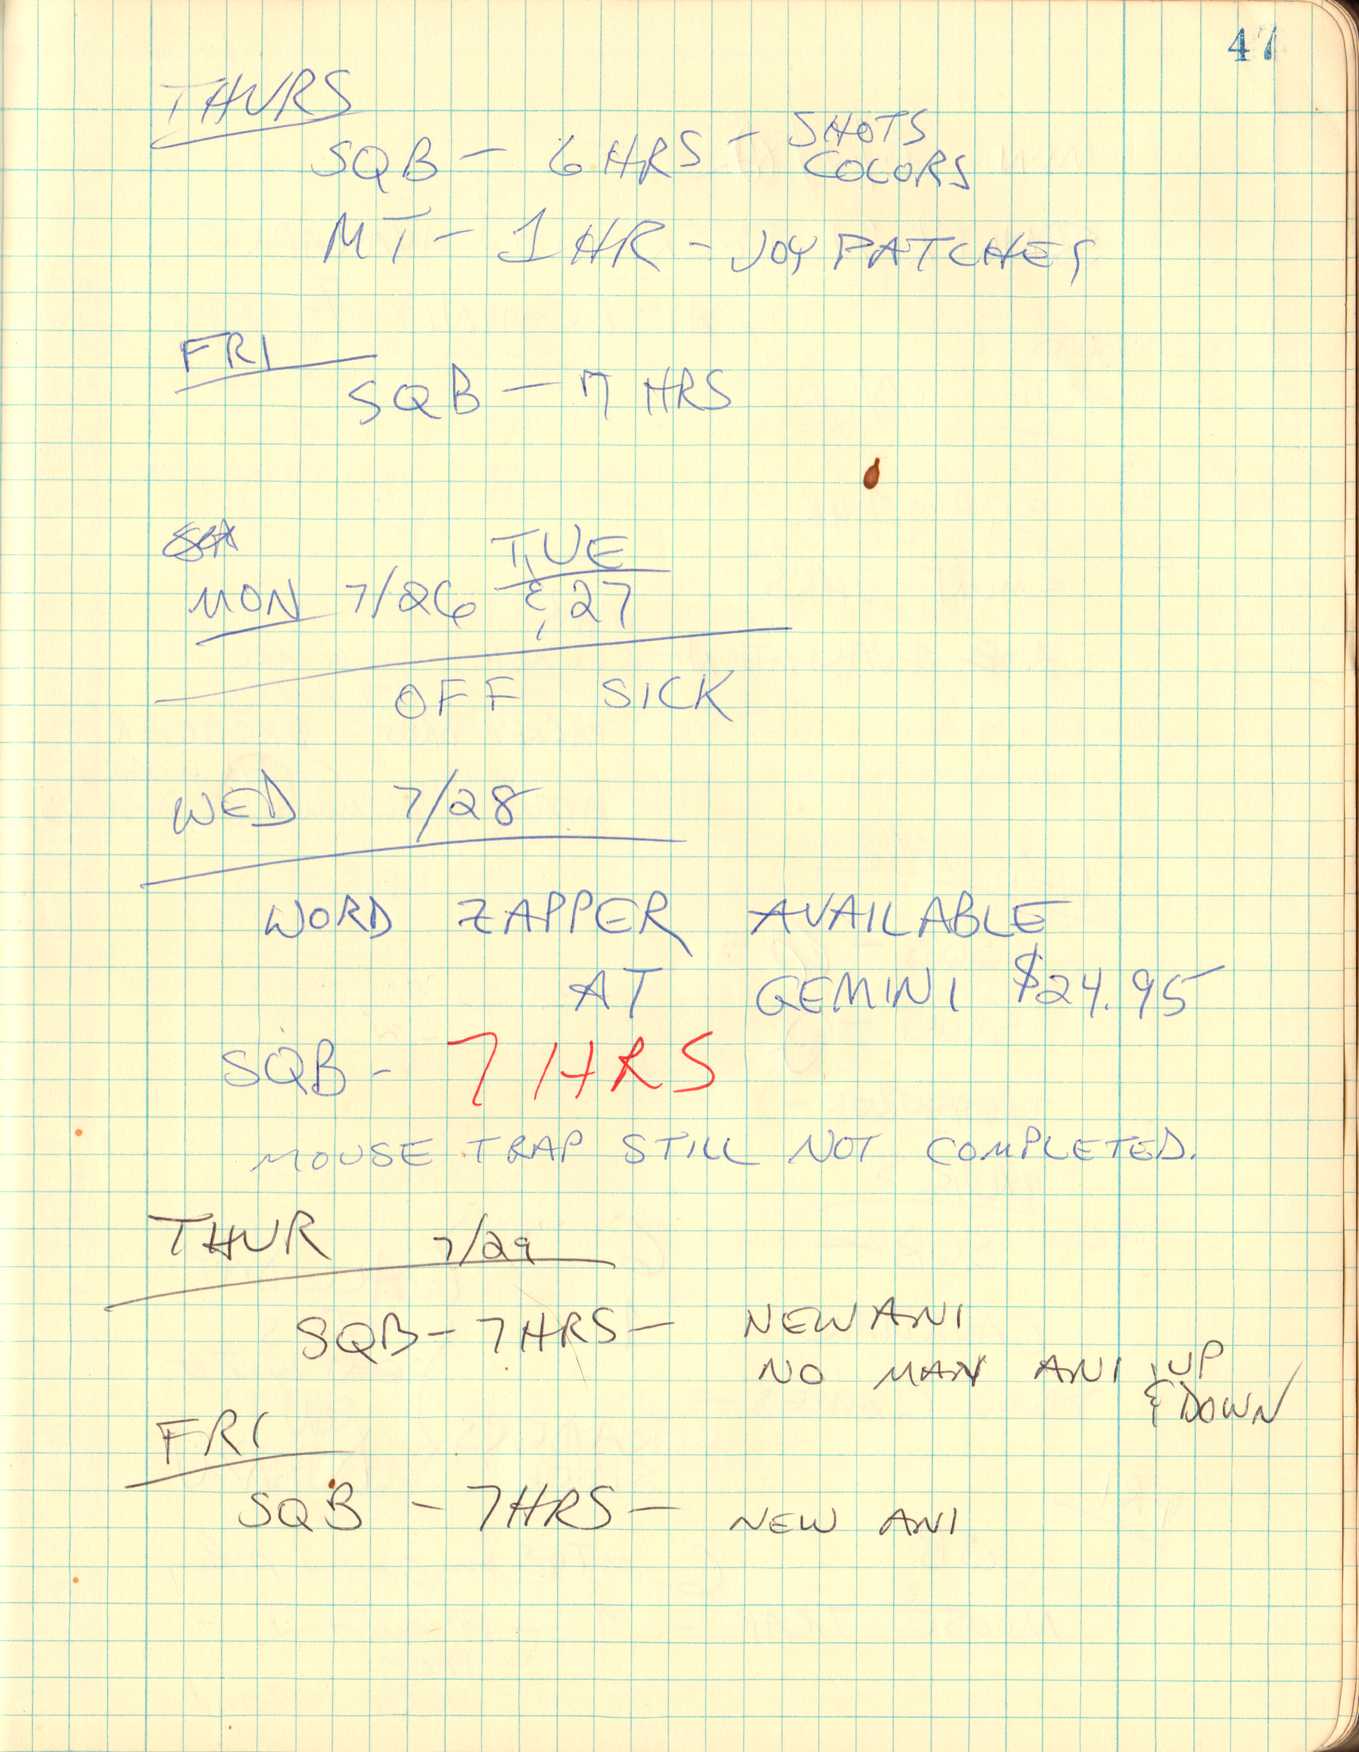 47
THURS
SQB - 6 HRS - SHOTS
COLORS
MT - 1 HR - JOY PATCHES
FRI
SQB - 7 HRS
TUE
MON 7/26 & 27
OFF SICK
WED 7/28
WORD ZAPPER AVAILABLE
AT GEMINI $24.95
SQB - 7 HRS
MOUSE TRAP STILL NOT COMPLETED.
THUR 7/29
SQB - 7 HRS - NEW ANI
NO MAN ANI UP
& DOWN
FRI
SQB - 7 HRS - NEW ANI